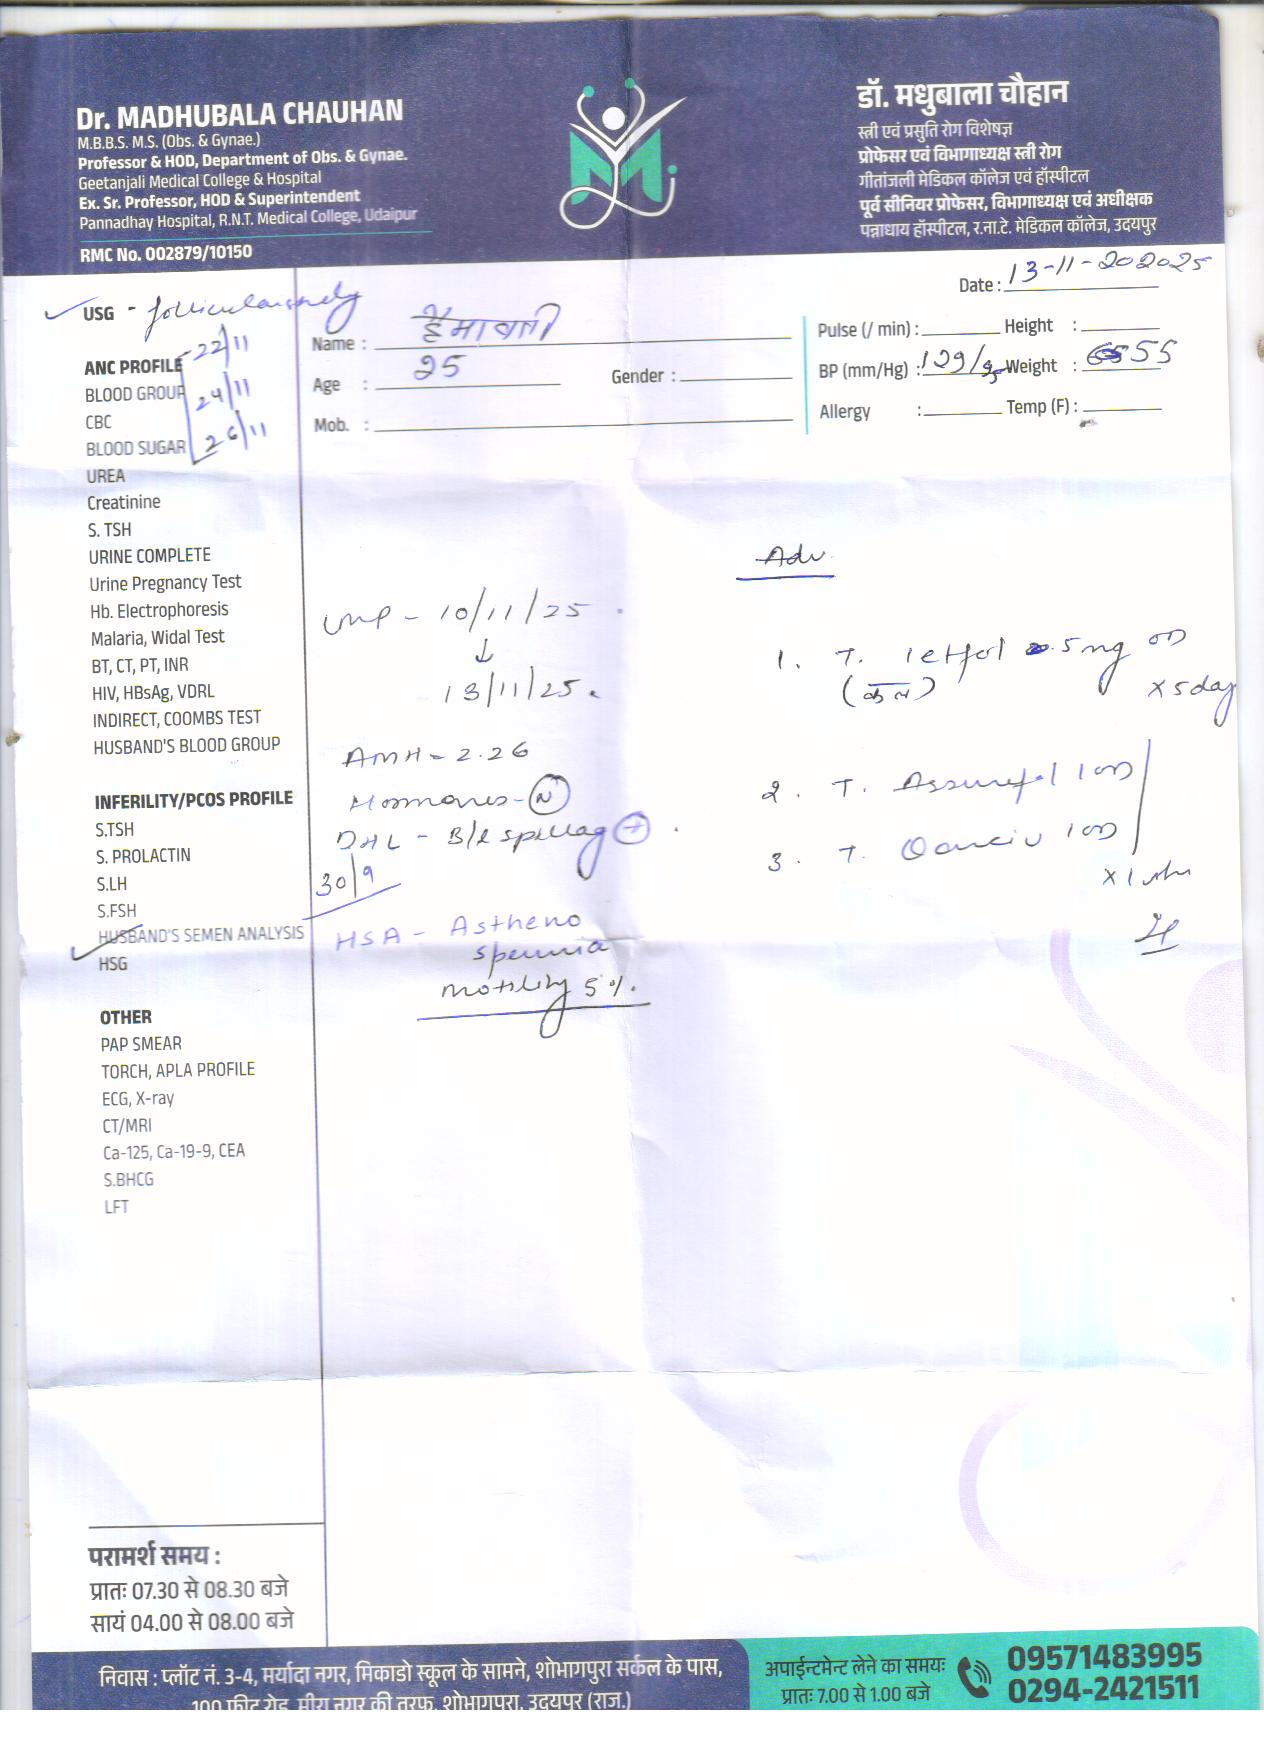 Dr. MADHUBALA CHAUHAN
M.B.B.S. M.S. (Obs. & Gynae.)
Professor & HOD, Department of Obs. & Gynae.
Geetanjali Medical College & Hospital
Ex. Sr. Professor, HOD & Superintendent
Pannadhay Hospital, R.N.T. Medical College, Udaipur
RMC No. 002879/10150
डॉ. मधुबाला चौहान
स्त्री एवं प्रसुति रोग विशेषज्ञ
प्रोफेसर एवं विभागाध्यक्ष स्त्री रोग
गीतांजली मेडिकल कॉलेज एवं हॉस्पीटल
पूर्व सीनियर प्रोफेसर, विभागाध्यक्ष एवं अधीक्षक
पन्नाधाय हॉस्पीटल, र.ना.टे. मेडिकल कॉलेज, उदयपुर
Date : 13-11-202025
Name : हेमावती
Age : 25 Gender :
Mob. :
Pulse (/ min) : Height :
BP (mm/Hg) : 129/ Weight : 55
Allergy : Temp (F) :
USG - follicular study
22/11
24/11
26/11
ANC PROFILE
BLOOD GROUP
CBC
BLOOD SUGAR
UREA
Creatinine
S. TSH
URINE COMPLETE
Urine Pregnancy Test
Hb. Electrophoresis
Malaria, Widal Test
BT, CT, PT, INR
HIV, HBsAg, VDRL
INDIRECT, COOMBS TEST
HUSBAND'S BLOOD GROUP
INFERILITY/PCOS PROFILE
S.TSH
S. PROLACTIN
S.LH
S.FSH
HUSBAND'S SEMEN ANALYSIS
HSG
OTHER
PAP SMEAR
TORCH, APLA PROFILE
ECG, X-ray
CT/MRI
Ca-125, Ca-19-9, CEA
S.BHCG
LFT
LMP - 10/11/25
↓
13/11/25.
AMH - 2.26
Hormones - N
DHL - B/L spillag +
30/9
HSA - Astheno
spermia
motility 5%.
Adv.
1. T. 5 mg OD
x 5 day
2. T. 1 OD
3. T. 1 OD
x 1
परामर्श समय :
प्रातः 07.30 से 08.30 बजे
सायं 04.00 से 08.00 बजे
निवास : प्लॉट नं. 3-4, मर्यादा नगर, मिकाडो स्कूल के सामने, शोभागपुरा सर्कल के पास,
100 फीट रोड, मीरा नगर की तरफ, शोभागपुरा, उदयपुर (राज.)
अपाईन्टमेन्ट लेने का समयः
प्रातः 7.00 से 1.00 बजे
09571483995
0294-2421511